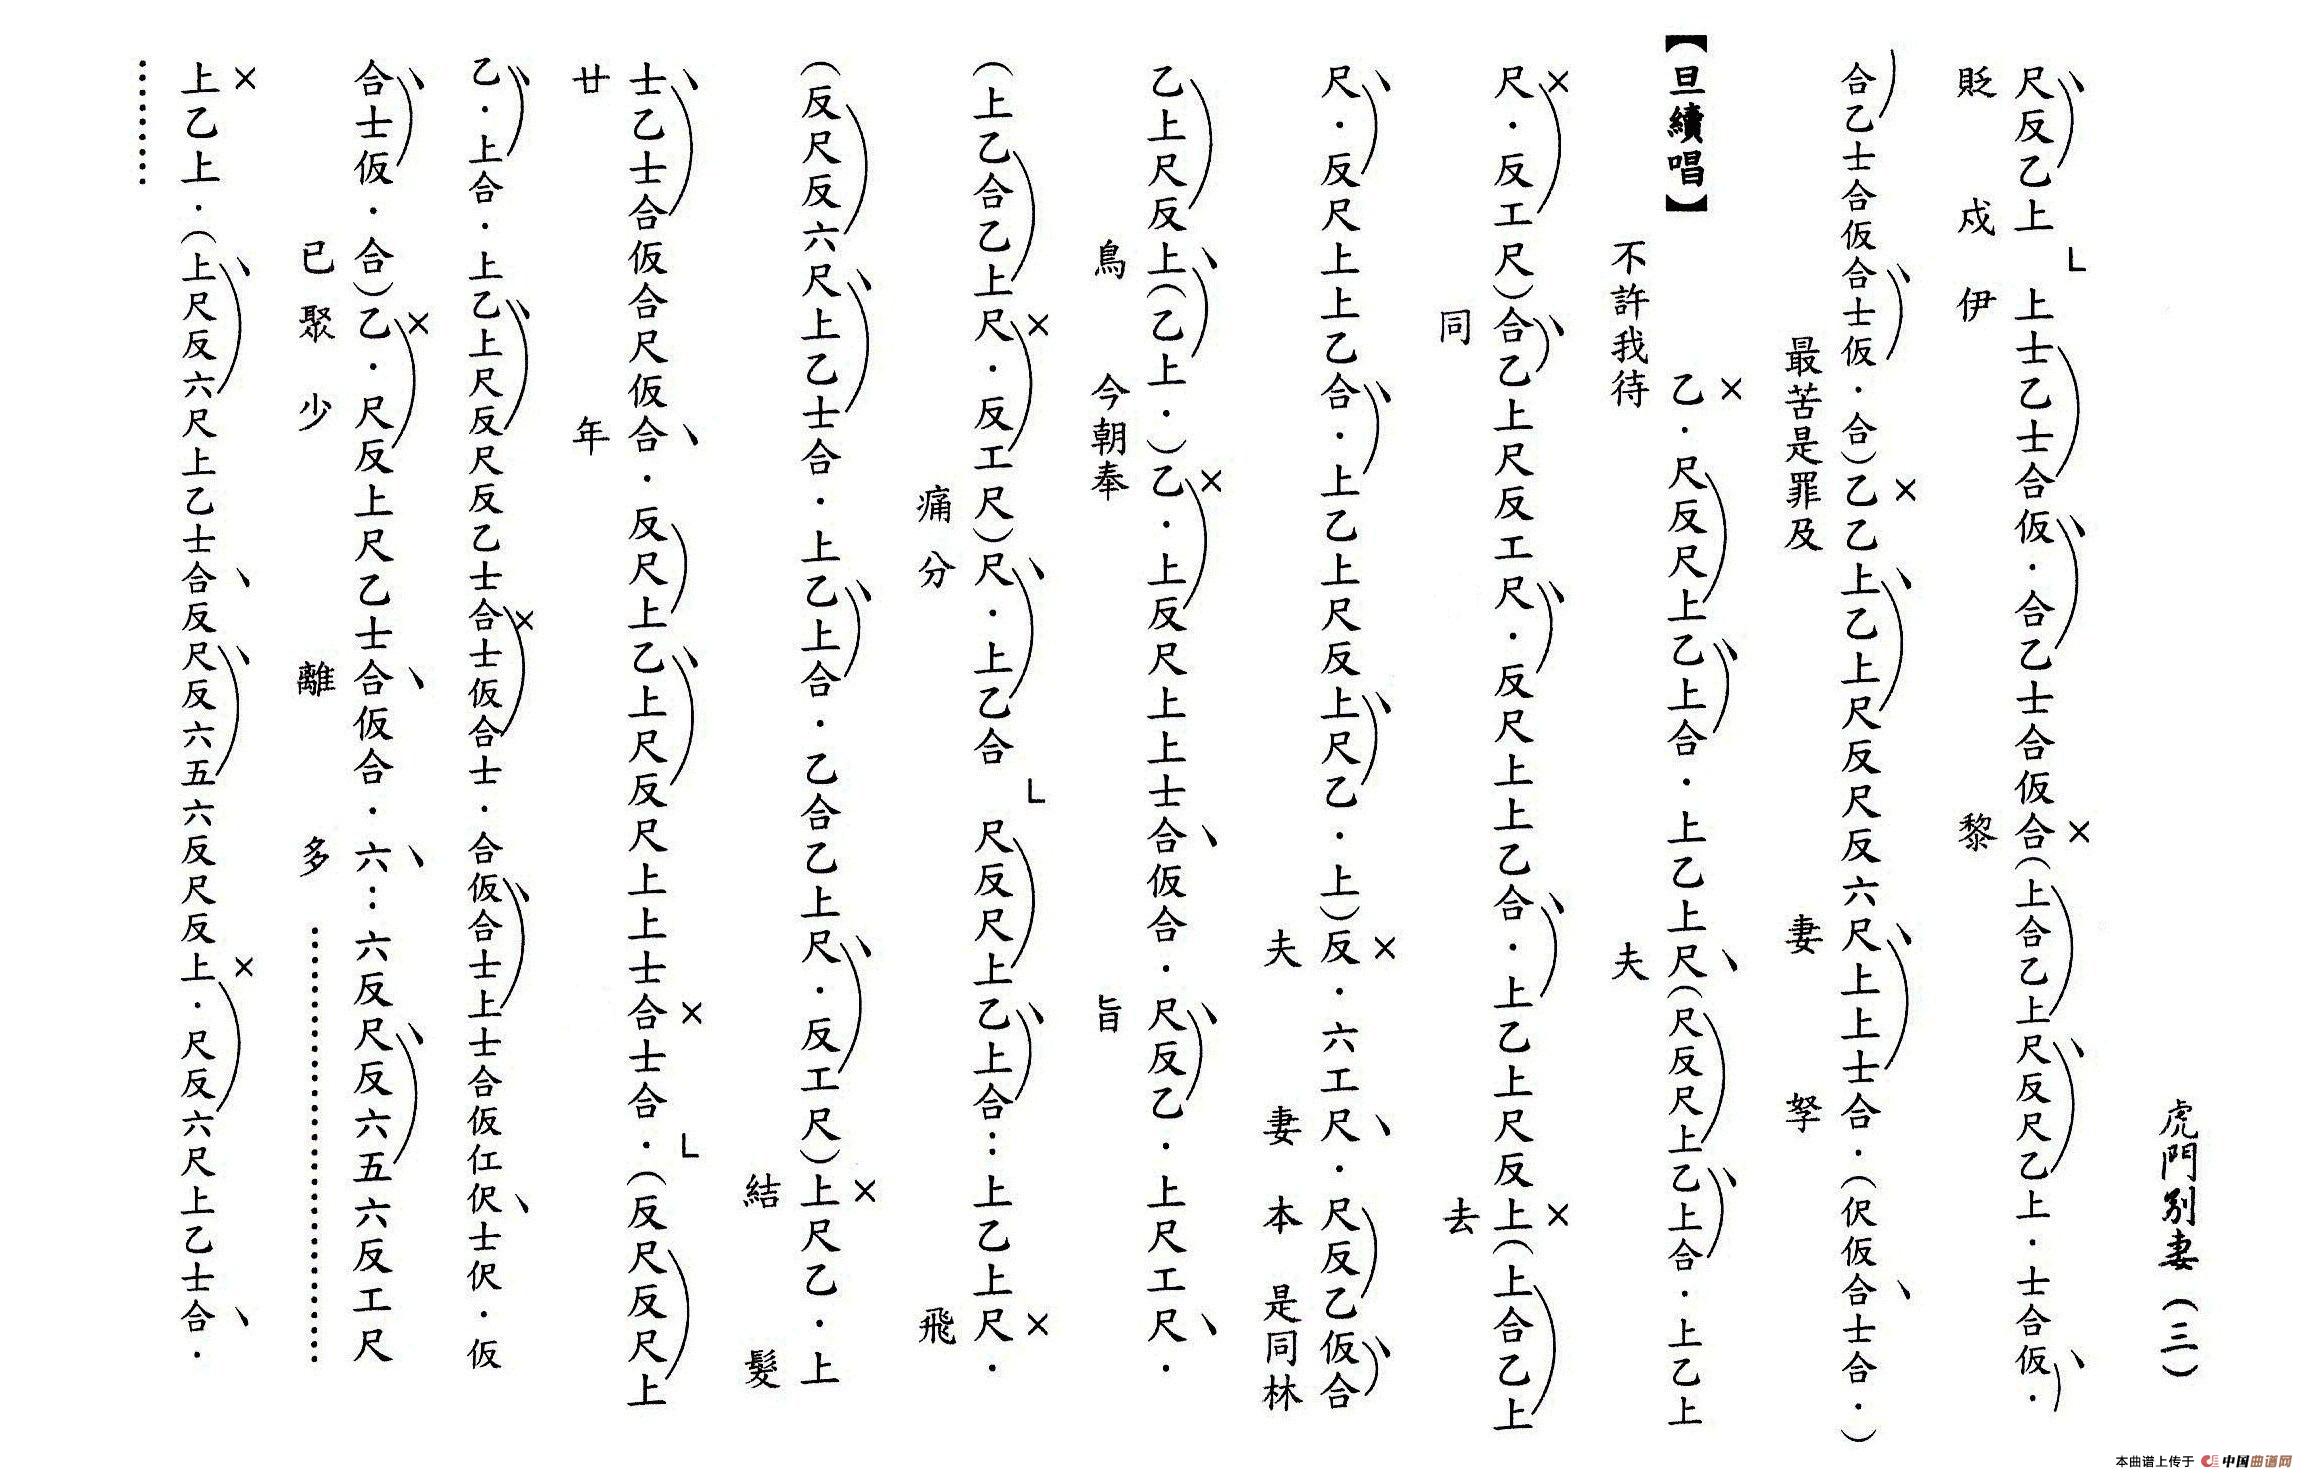 虎門別妻（三）
尺反乙上 上士乙士合仮．合乙士合仮合（上合乙上尺反尺乙上．士合仮．
貶 戍 伊 黎
合乙士合仮合士仮．合）乙乙上乙上尺反尺反六尺上上士合．（伬仮合士合．）
最苦是罪及 妻 孥
【旦續唱】
乙．尺反尺上乙上合．上乙上尺（尺反尺上乙上合．上乙上
不許我待 夫
尺．反工尺）合乙上尺反工尺．反尺上上乙合．上乙上尺反上（上合乙上
同 去
尺．反尺上上乙合．上乙上尺反上尺乙．上）反．六工尺．尺反乙仮合
夫 妻 本 是同林
乙上尺反上（乙上．）乙．上反尺上上士合仮合．尺反乙．上尺工尺．
鳥 今朝奉 旨
（上乙合乙上尺．反工尺）尺．上乙合 尺反尺上乙上合：上乙上尺．
痛 分 飛
（反尺反六尺上乙士合．上乙上合．乙合乙上尺．反工尺）上尺乙．上
結 髮
士乙士合仮合尺仮合．反尺上乙上尺反尺上上士合士合．（反尺反尺上
廿 年
乙．上合．上乙上尺反尺反乙士合士仮合士．合仮合士上士合仮仜伬士伬．仮
合士仮．合）乙．尺反上尺乙士合仮合．六：六反尺反六五六反工尺
已 聚 少 離 多
上乙上．（上尺反六尺上乙士合反尺反六五六反尺反上．尺反六尺上乙士合．
本曲谱上传于 中国曲谱网